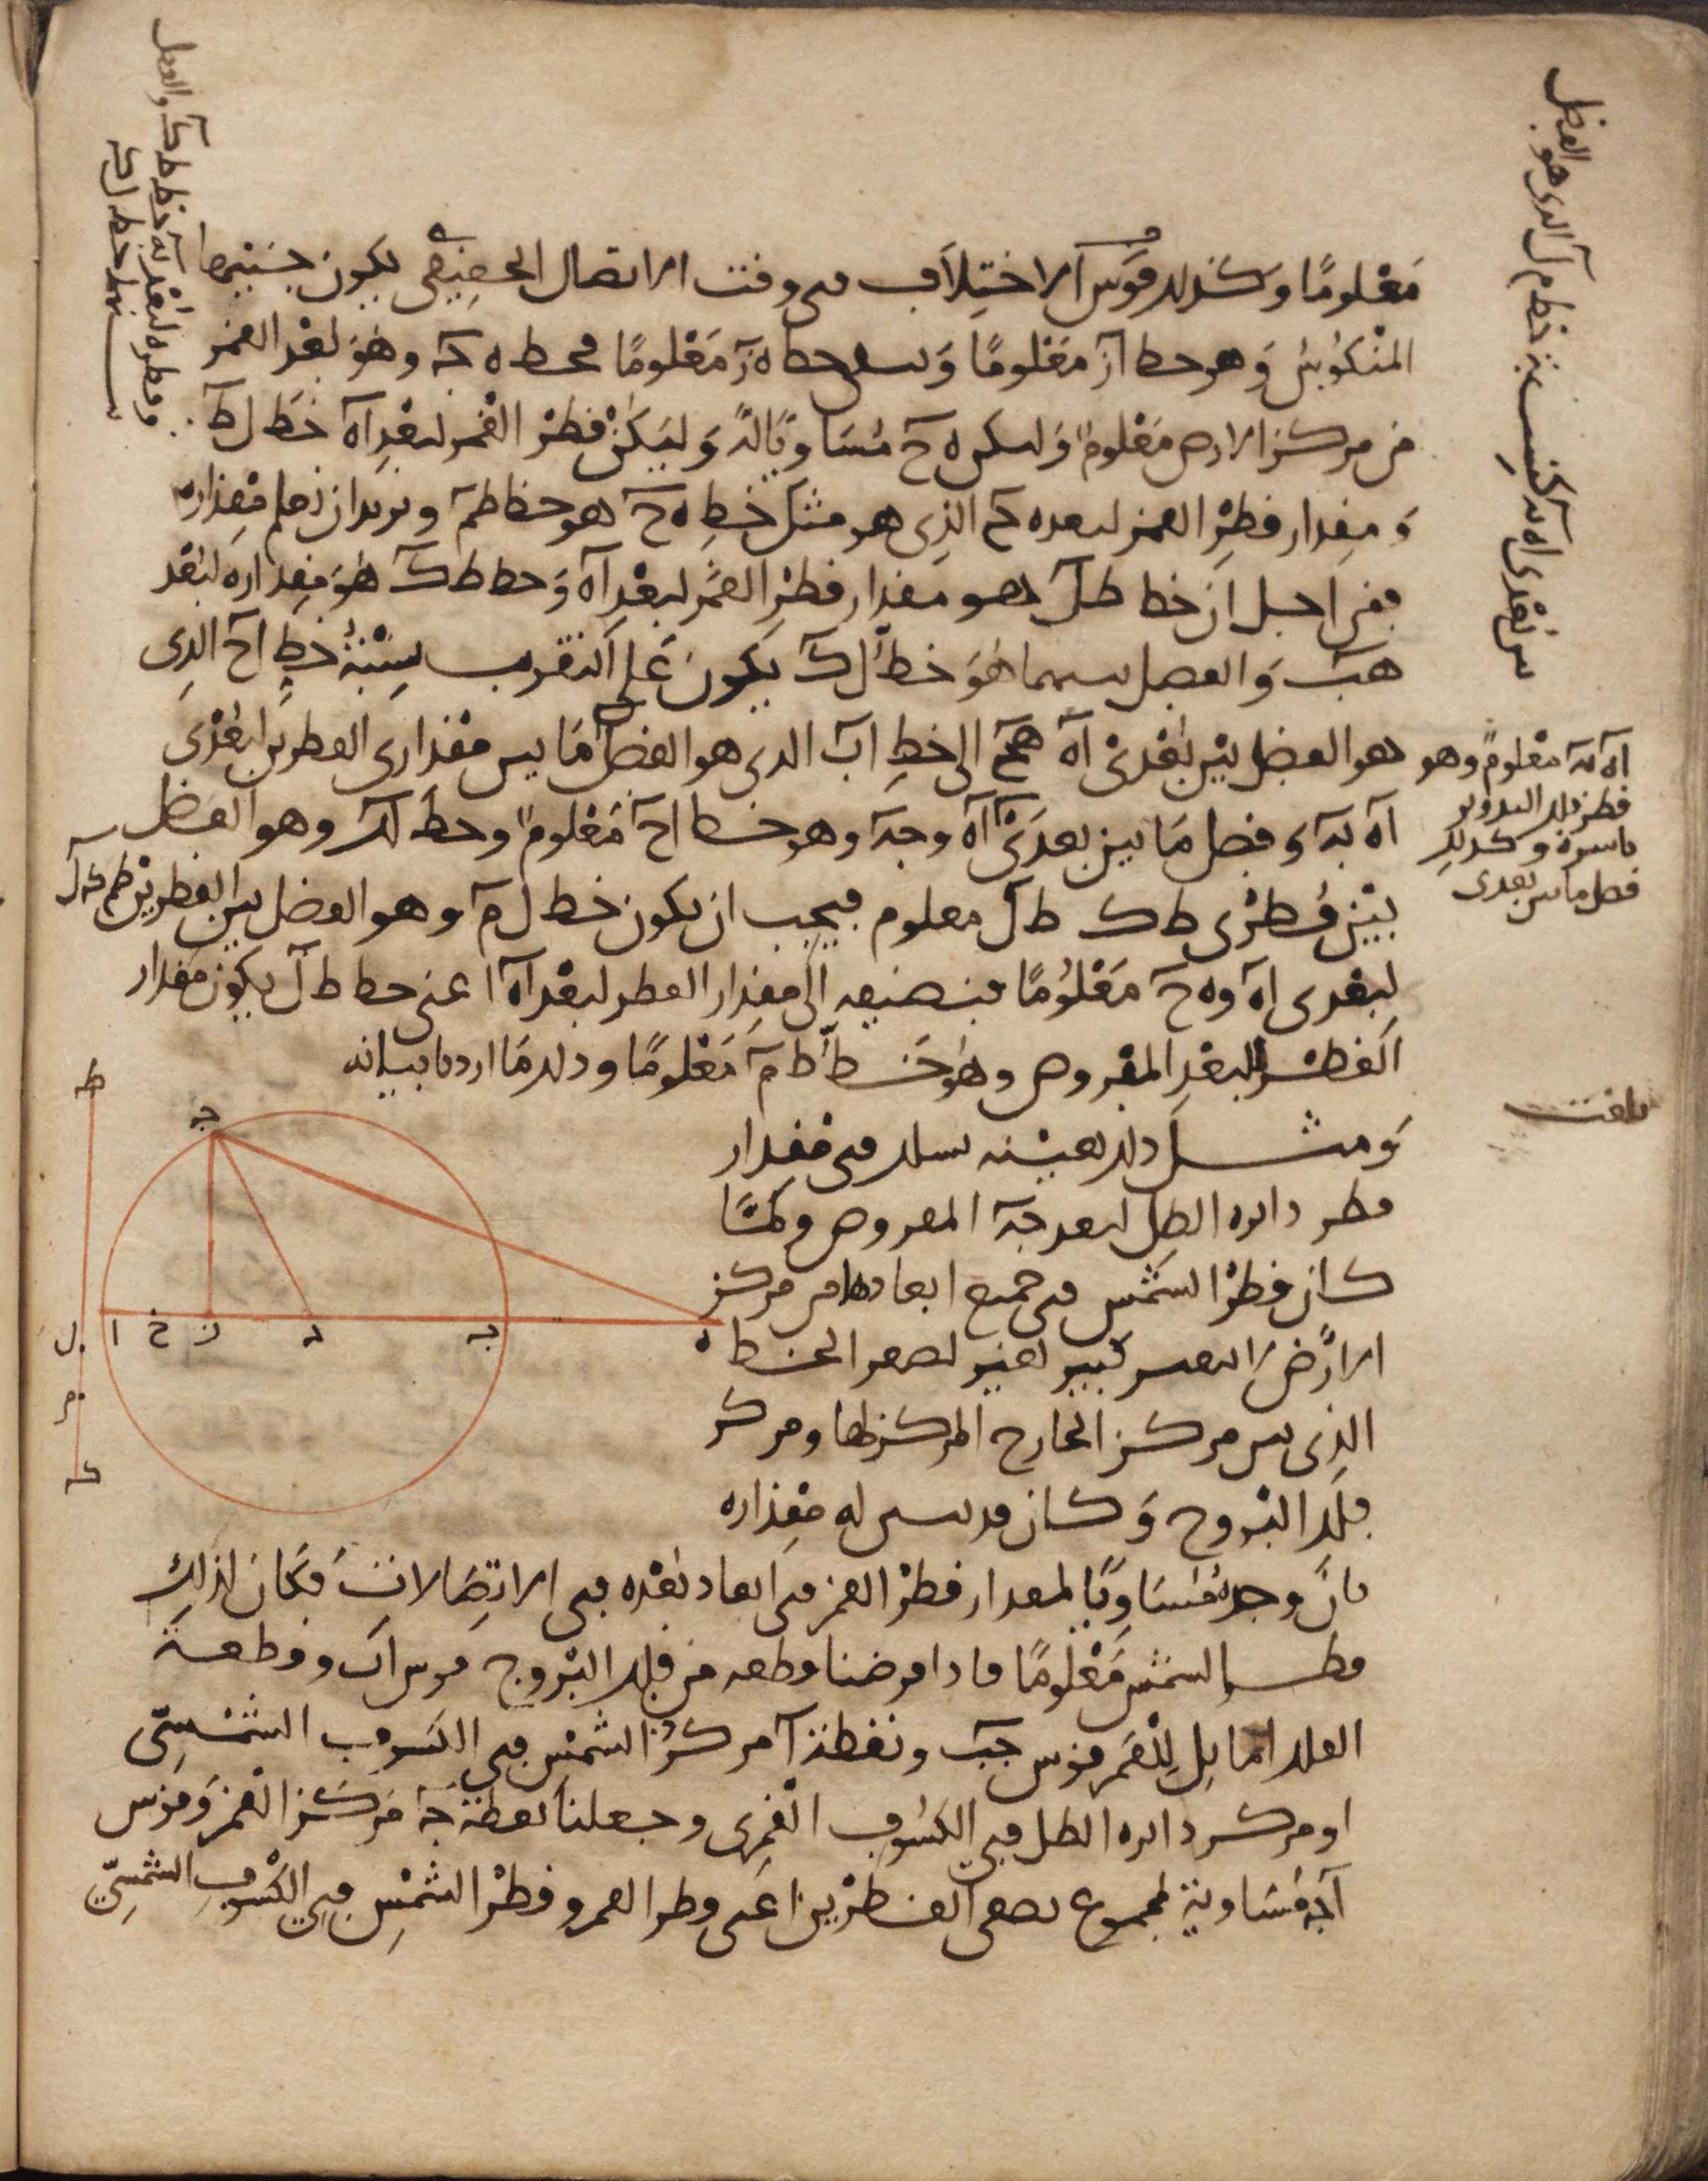 معلومًا وكذلك قوس الاختلاف في وقت الاتصال الحقيقي يكون جيبها
المنكوس وهو خط آز معلومًا وخط ه ز معلومًا فخط ه جـ وهو بعد القمر
من مركز الارض معلوم وليكن ه ح مساويًا له وليكن قطر القمر لبعد آه خط ل ط
ومقدار قطر القمر لبعد ه جـ الذي هو مثل خط ه ح هو خط ط م ونريد ان نعلم مقداره
فمن اجل ان خط ط ل هو مقدار قطر القمر لبعد آه وخط ط ك هو مقداره لبعد
ه ب والفضل بينهما هو خط ل ك يكون على التقريب نسبة خط ا ح الذي
هو الفضل بين بعدي آه ه ح الى خط ا ب الذي هو الفضل ما بين مقداري القطرين لبعدي
آه ب ه وفضل ما بين بعدي آه و جـ ه وهو خط ا ح معلوم وخط ل ك وهو الفضل
بين قطري ط ك ط ل معلوم فيجب ان يكون خط ل م وهو الفضل بين القطرين ط م ط ل
لبعدي اه و ه ح معلومًا فنضيفه الى مقدار القطر لبعد آه اعني خط ط ل يكون مقدار
القطر للبعد المفروض وهو خط ط م معلومًا وذلك ما اردنا بيانه
ومثل ذلك بعينه نسلك في مقدار
قطر دائرة الظل لبعد جـ ه المفروض ولما
كان قطر الشمس في جميع ابعادها من مركز
الارض لا يتغير كبير تغير لصغر الخط
الذي بين مركز الخارج المركز لها ومركز
فلك البروج وكان قد تبين له مقداره
بان وجده مساويًا لمقدار قطر القمر في ابعاد بعده في الاتصالات فكان لذلك
قطر الشمس معلومًا فاذا فرضنا قطعة من فلك البروج قوس ا ب وقطعة
الفلك المايل للقمر قوس جـ ب ونقطة آ مركز الشمس في الكسوف الشمسي
او مركز دائرة الظل في الكسوف القمري وجعلنا نقطة جـ مركز القمر وقوس
آ جـ مساوية لمجموع نصفي القطرين اعني قطر القمر وقطر الشمس في الكسوف الشمسي
آه ب ه معلوم وهو
قطر فلك التدوير
باسره وكذلك
فضل ما بين بعدي
بلغت
ط
جـ
ل
ا
ح
ز
د
ب
ه
م
ك